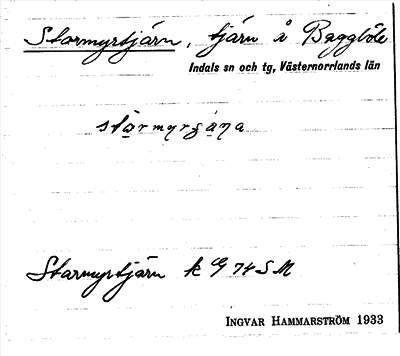 Starmyrtjärn, tjärn å Baggböle
Indals sn och tg, Västernorrlands län
Starmyrtjärn k G 74 SM
INGVAR HAMMARSTRÖM 1933